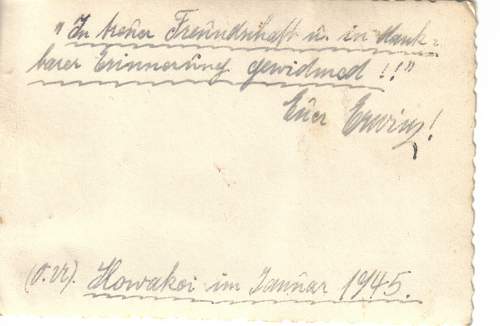 "In treuer Freundschaft u. in dank-
barer Erinnerung gewidmed!!"
Euer Erwin!
Howakei im Januar 1945.